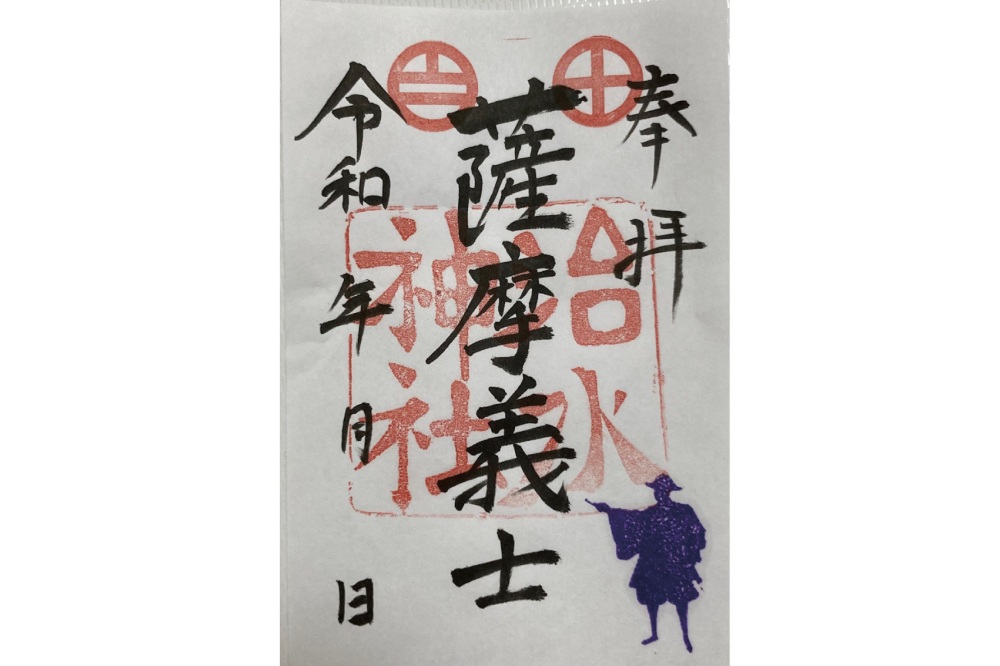 奉拝
薩摩義士
令和 年 月 日
治水
神社